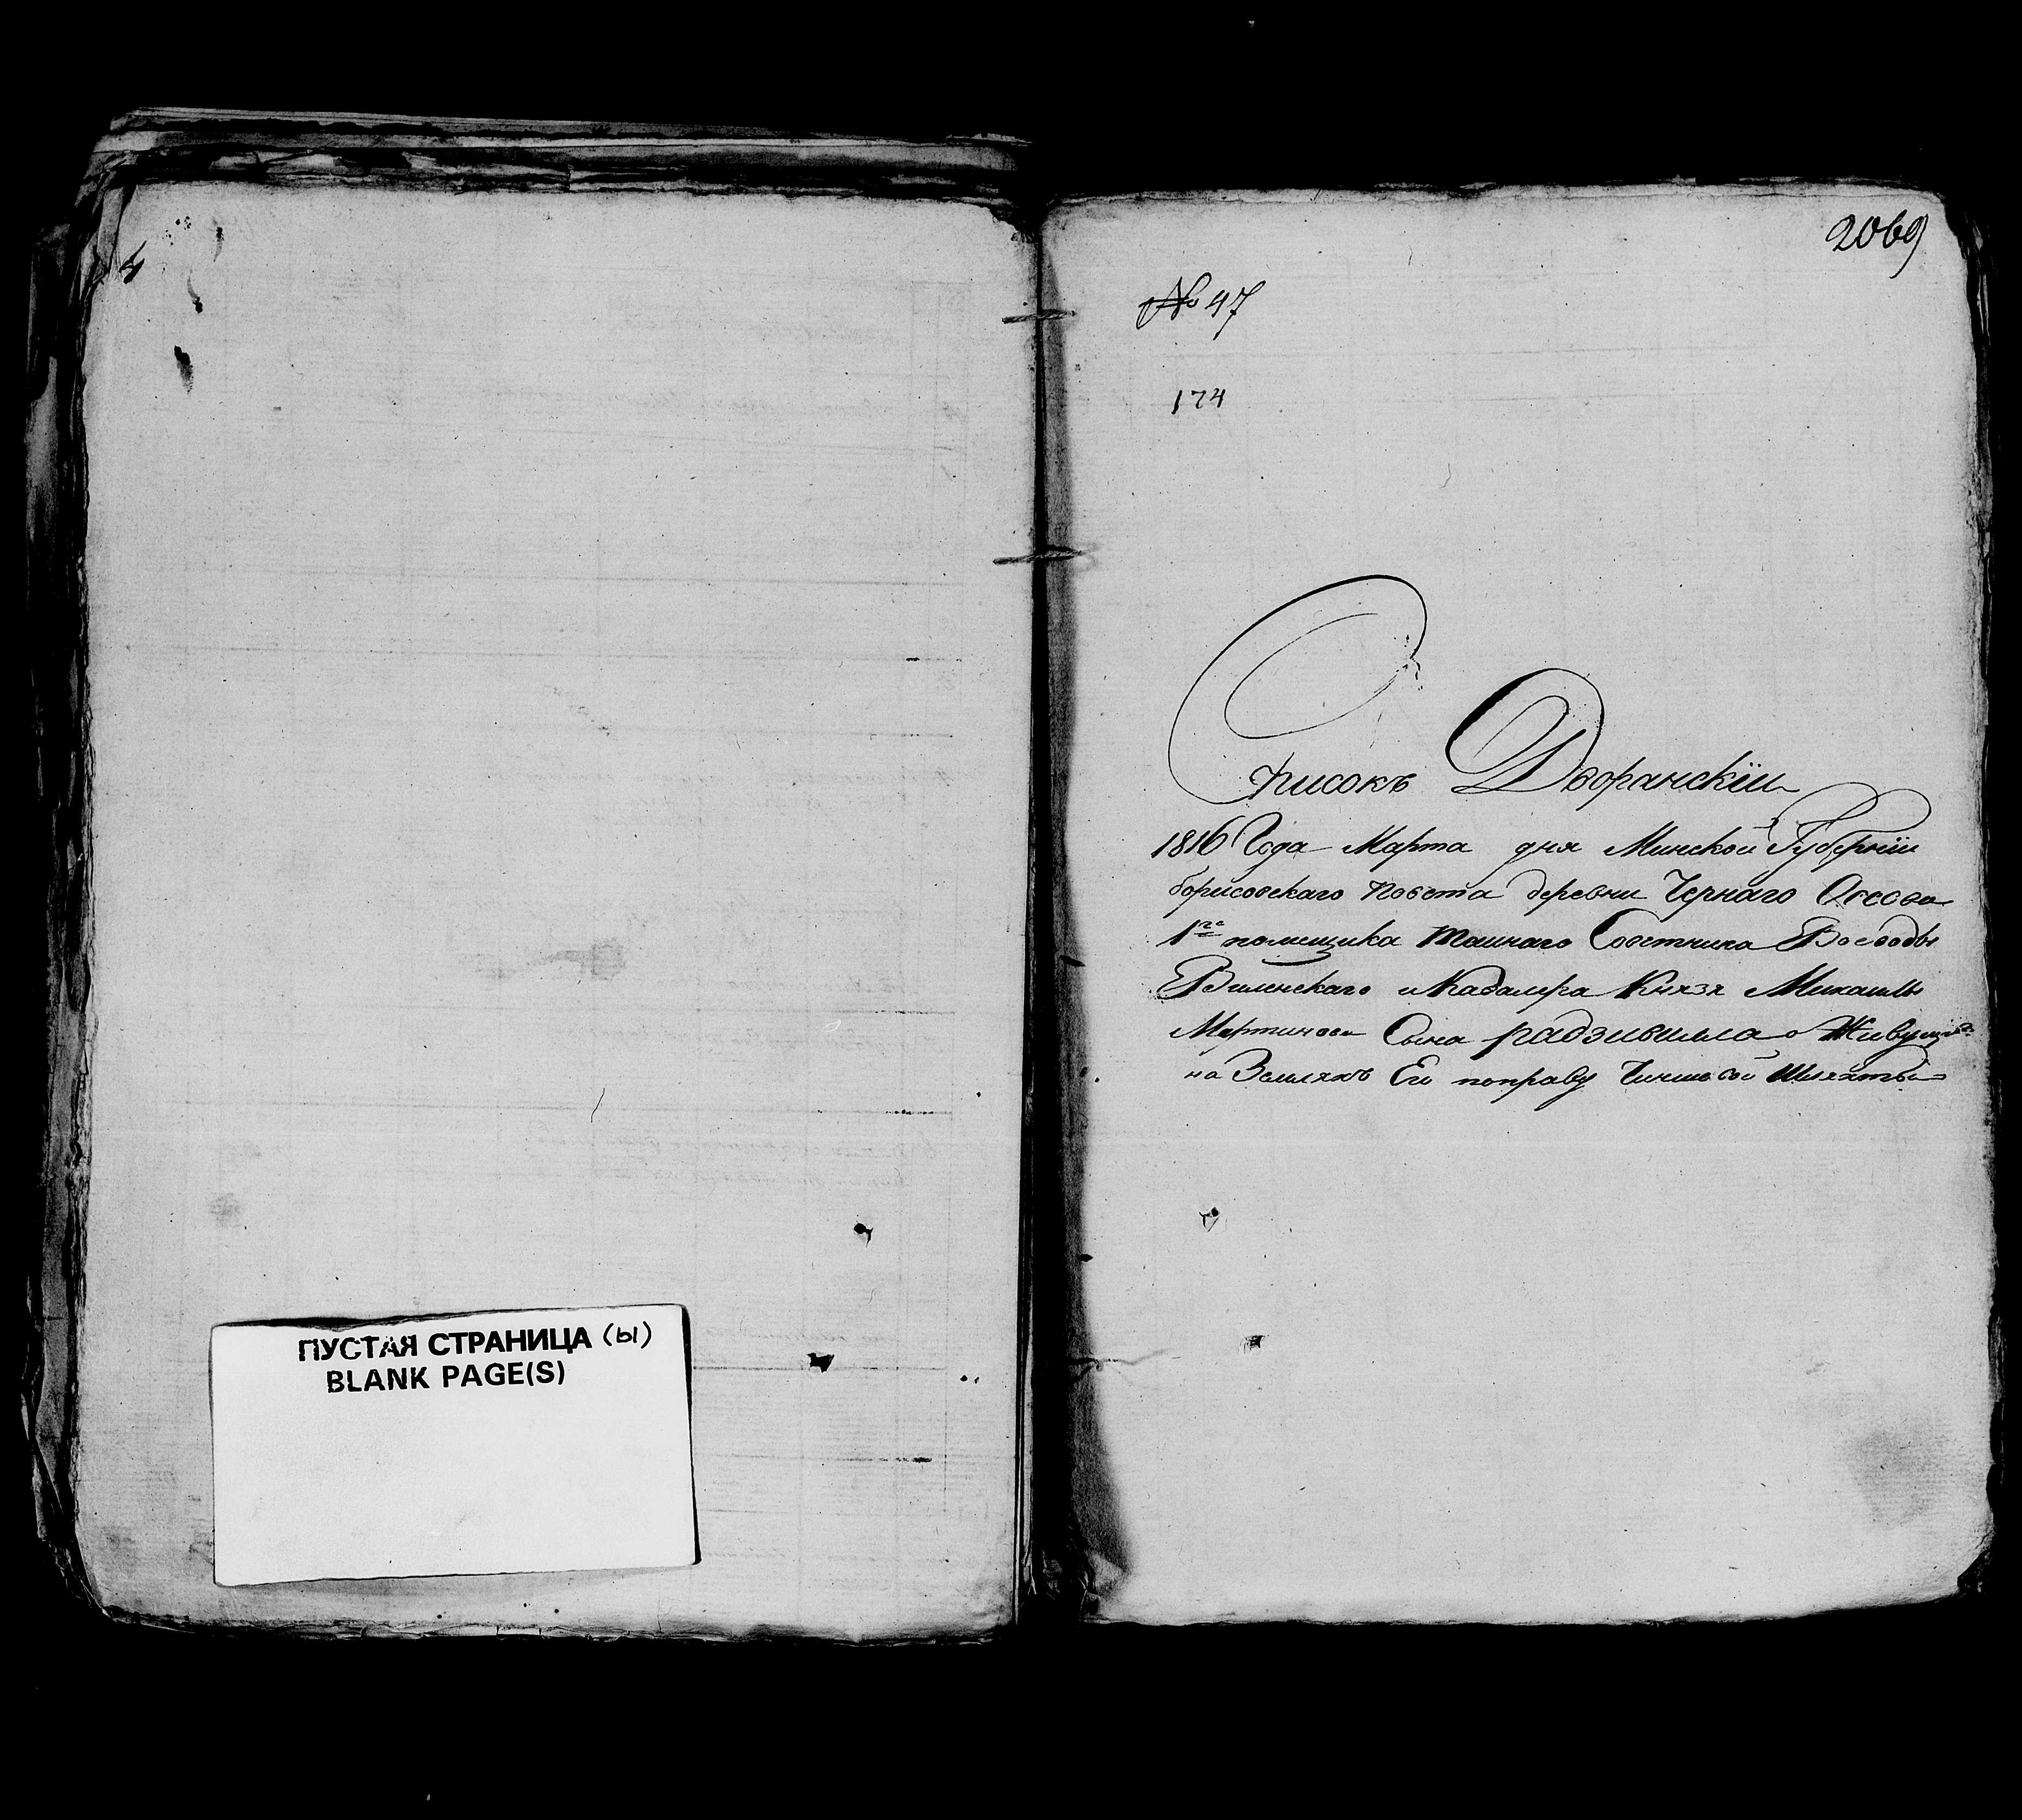 4
ПУСТАЯ СТРАНИЦА (ы)
BLANK PAGE(S)
2069
№ 47
174
Списокъ Дворанскiи
1816 Года Марта дня Минской Губернiи
борисовского Повета деревни Чернаго Осова
1го помещика Тайнаго Советника Воеводы
Виленскаго и Кавалера Князя Михаилы
Мартинова Сына радзивилла о Живущей
на Земляхъ Его поправу Чиншовой Шляхты